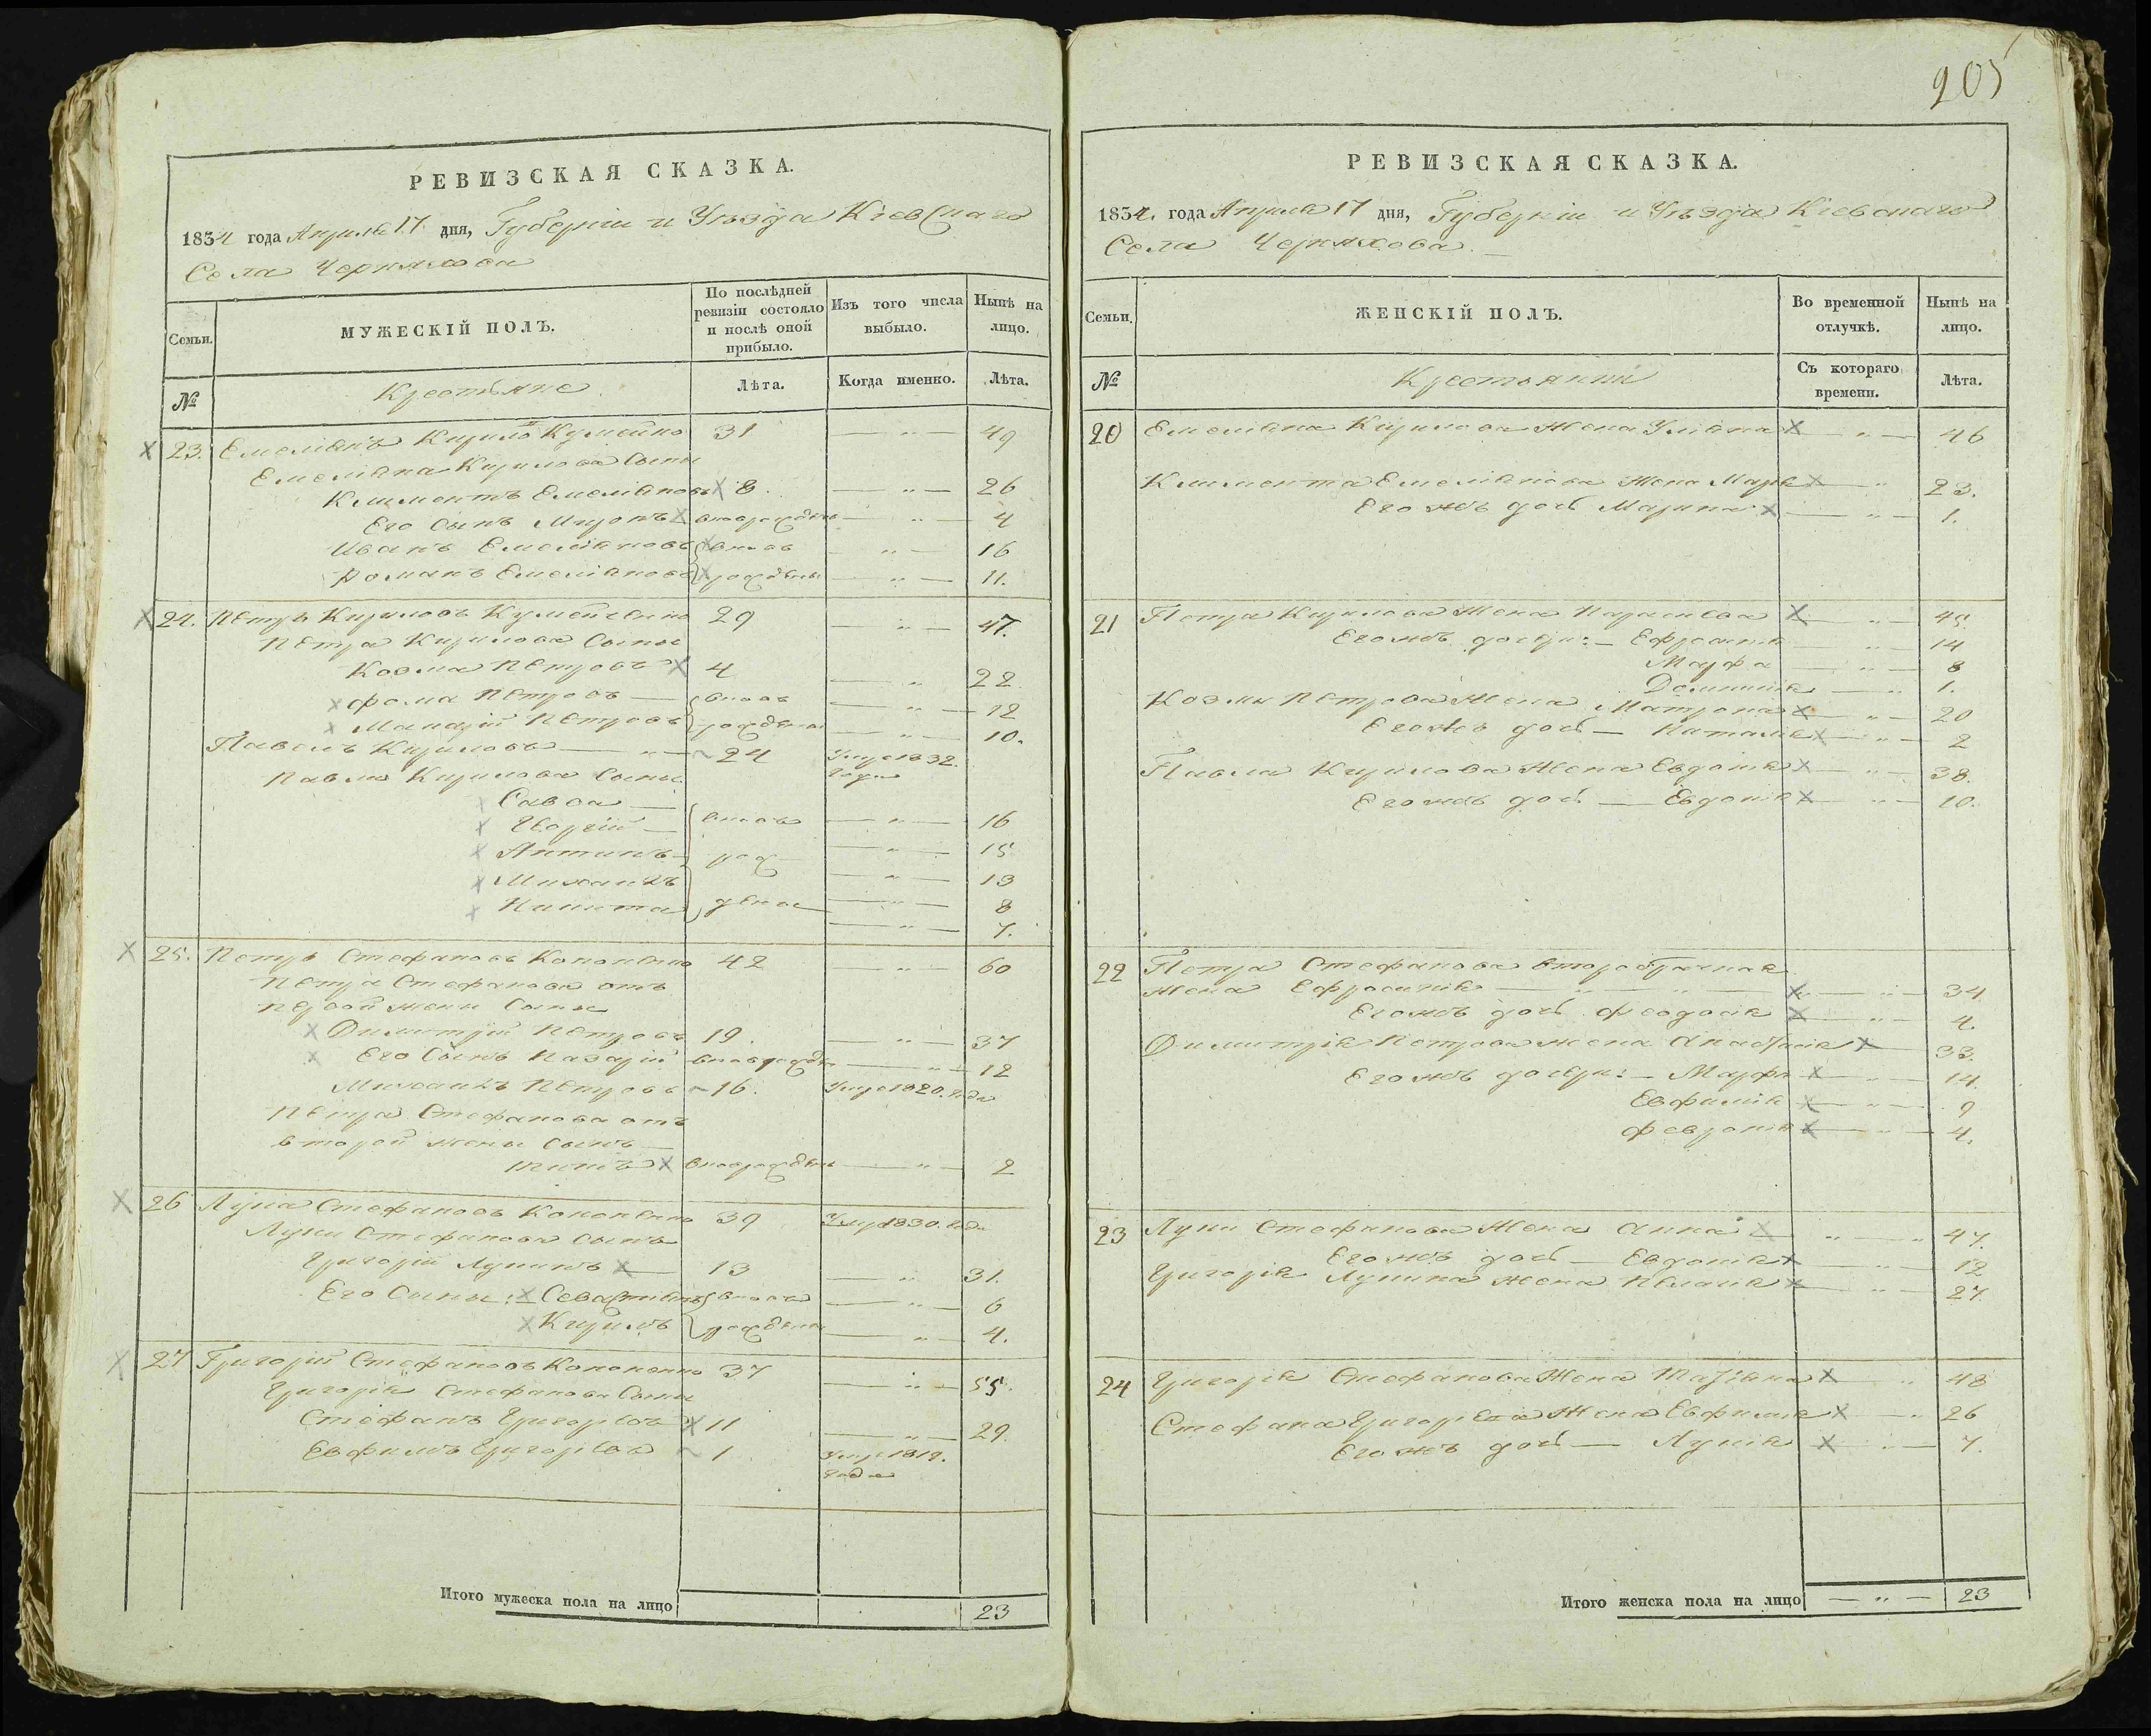 205
РЕВИЗСКАЯ СКАЗКА.
1834 года Апреля 17 дня, Губерніи и Уѣзда Кіевскаго
Села Черняхова
Семьи.
МУЖЕСКІЙ ПОЛЪ.
По послѣдней ревизіи состояло и послѣ оной прибыло.
Изъ того числа выбыло.
Нынѣ на лицо.
№
Крестьяне
Лѣта.
Когда именно.
Лѣта.
23. Емеліанъ Кирило 31 — „ — 49
Емеліана Кирилова Сыны
Климентъ Емеліановъ 8. — „ — 26
Его Сынъ Миронъ вновьрожденъ — „ — 4
Иванъ Емеліановъ вновь — „ — 16
Романъ Емеліановъ рождены — „ — 11.
24. Петръ Кириловъ 29 — „ — 47.
Петра Кирилова Сыны
Козма Петровъ 4 — „ 22
Фома Петровъ — вновь — „ — 12
Петровъ рождены — „ — 10.
Павелъ Кириловъ — „ — 24 Умре 1832. года
Павла Кирилова Сыны
Савва —
Георгій — вновь — „ — 16
Антинъ — рож — „ — 15
Михаилъ — „ — 13
Никита дены — „ — 8
— „ — 7.
25. Петръ Стефановъ Кононенко 42 — „ — 60
Петра Стефанова отъ
первой жены Сыны
Димитрій Петровъ 19. — „ — 37
Его Сынъ Назарій вновьрожде — „ — 12
Михаилъ Петровъ 16. Умре 1820. года
Петра Стефанова отъ
второй жены Сынъ
Титъ вновьрожденъ — „ — 2
26 Лука Стефановъ Кононенко 39 Умре 1830. года
Луки Стефанова Сынъ
Григорій Лукинъ 13 — „ 31.
Его Сыны: Севастіянъ вновь — „ — 6
Кирилъ рождены — „ — 4.
27 Григорій Стефановъ Кононенко 37 — „ — 55.
Григорія Стефанова Сыны
Стефанъ Григоріевъ 11 — „ — 29.
Евфимъ Григоріевъ 1 Умре 1819. года
Итого мужеска пола на лицо 23
РЕВИЗСКАЯ СКАЗКА.
1834. года Апреля 17 дня, Губерніи и Уѣзда Кіевскаго
Села Черняхова. —
Семьи.
ЖЕНСКІЙ ПОЛЪ.
Во временной отлучкѣ.
Нынѣ на лицо.
№
Крестьянки
Съ котораго времени.
Лѣта.
20 Емеліана Кирилова Жена Уліана — „ — 46
Климента Емеліанова Жена Марія — „ 23.
Его жъ доч Марина — „ — 1.
21 Петра Кирилова Жена Параскева — „ — 45
Его жъ дочери: — 14
Марфа — „ — 8
Домникія — „ 1.
Козмы Петрова Жена Матрона — „ — 20
Его жъ доч — Наталія — „ — 2
Павла Кирилова Жена Евдокія — „ — 38.
Его жъ доч — Евдокія — „ — 10.
22 Петра Стефанова второбрачная
жена Ефросинія — „ — „ — 34
Его жъ доч Феодосія — „ — 4.
Димитрія Петрова жена Анастасія — 33.
Его жъ дочери: — Марфа — „ — 14.
Евфимія — „ — 9
Февронія — „ — 4.
23 Луки Стефанова Жена Анна „ — „ 47.
Его жъ доч — Евдокія — „ — 12
Григорія Лукина жена Пелагія — „ — 27.
24 Григорія Стефанова Жена Татіяна — „ 48
Стефана Григоріева Жена Евфимія — „ 26
Его жъ доч — Лукія — „ — 7.
Итого женска пола на лицо — „ — 23